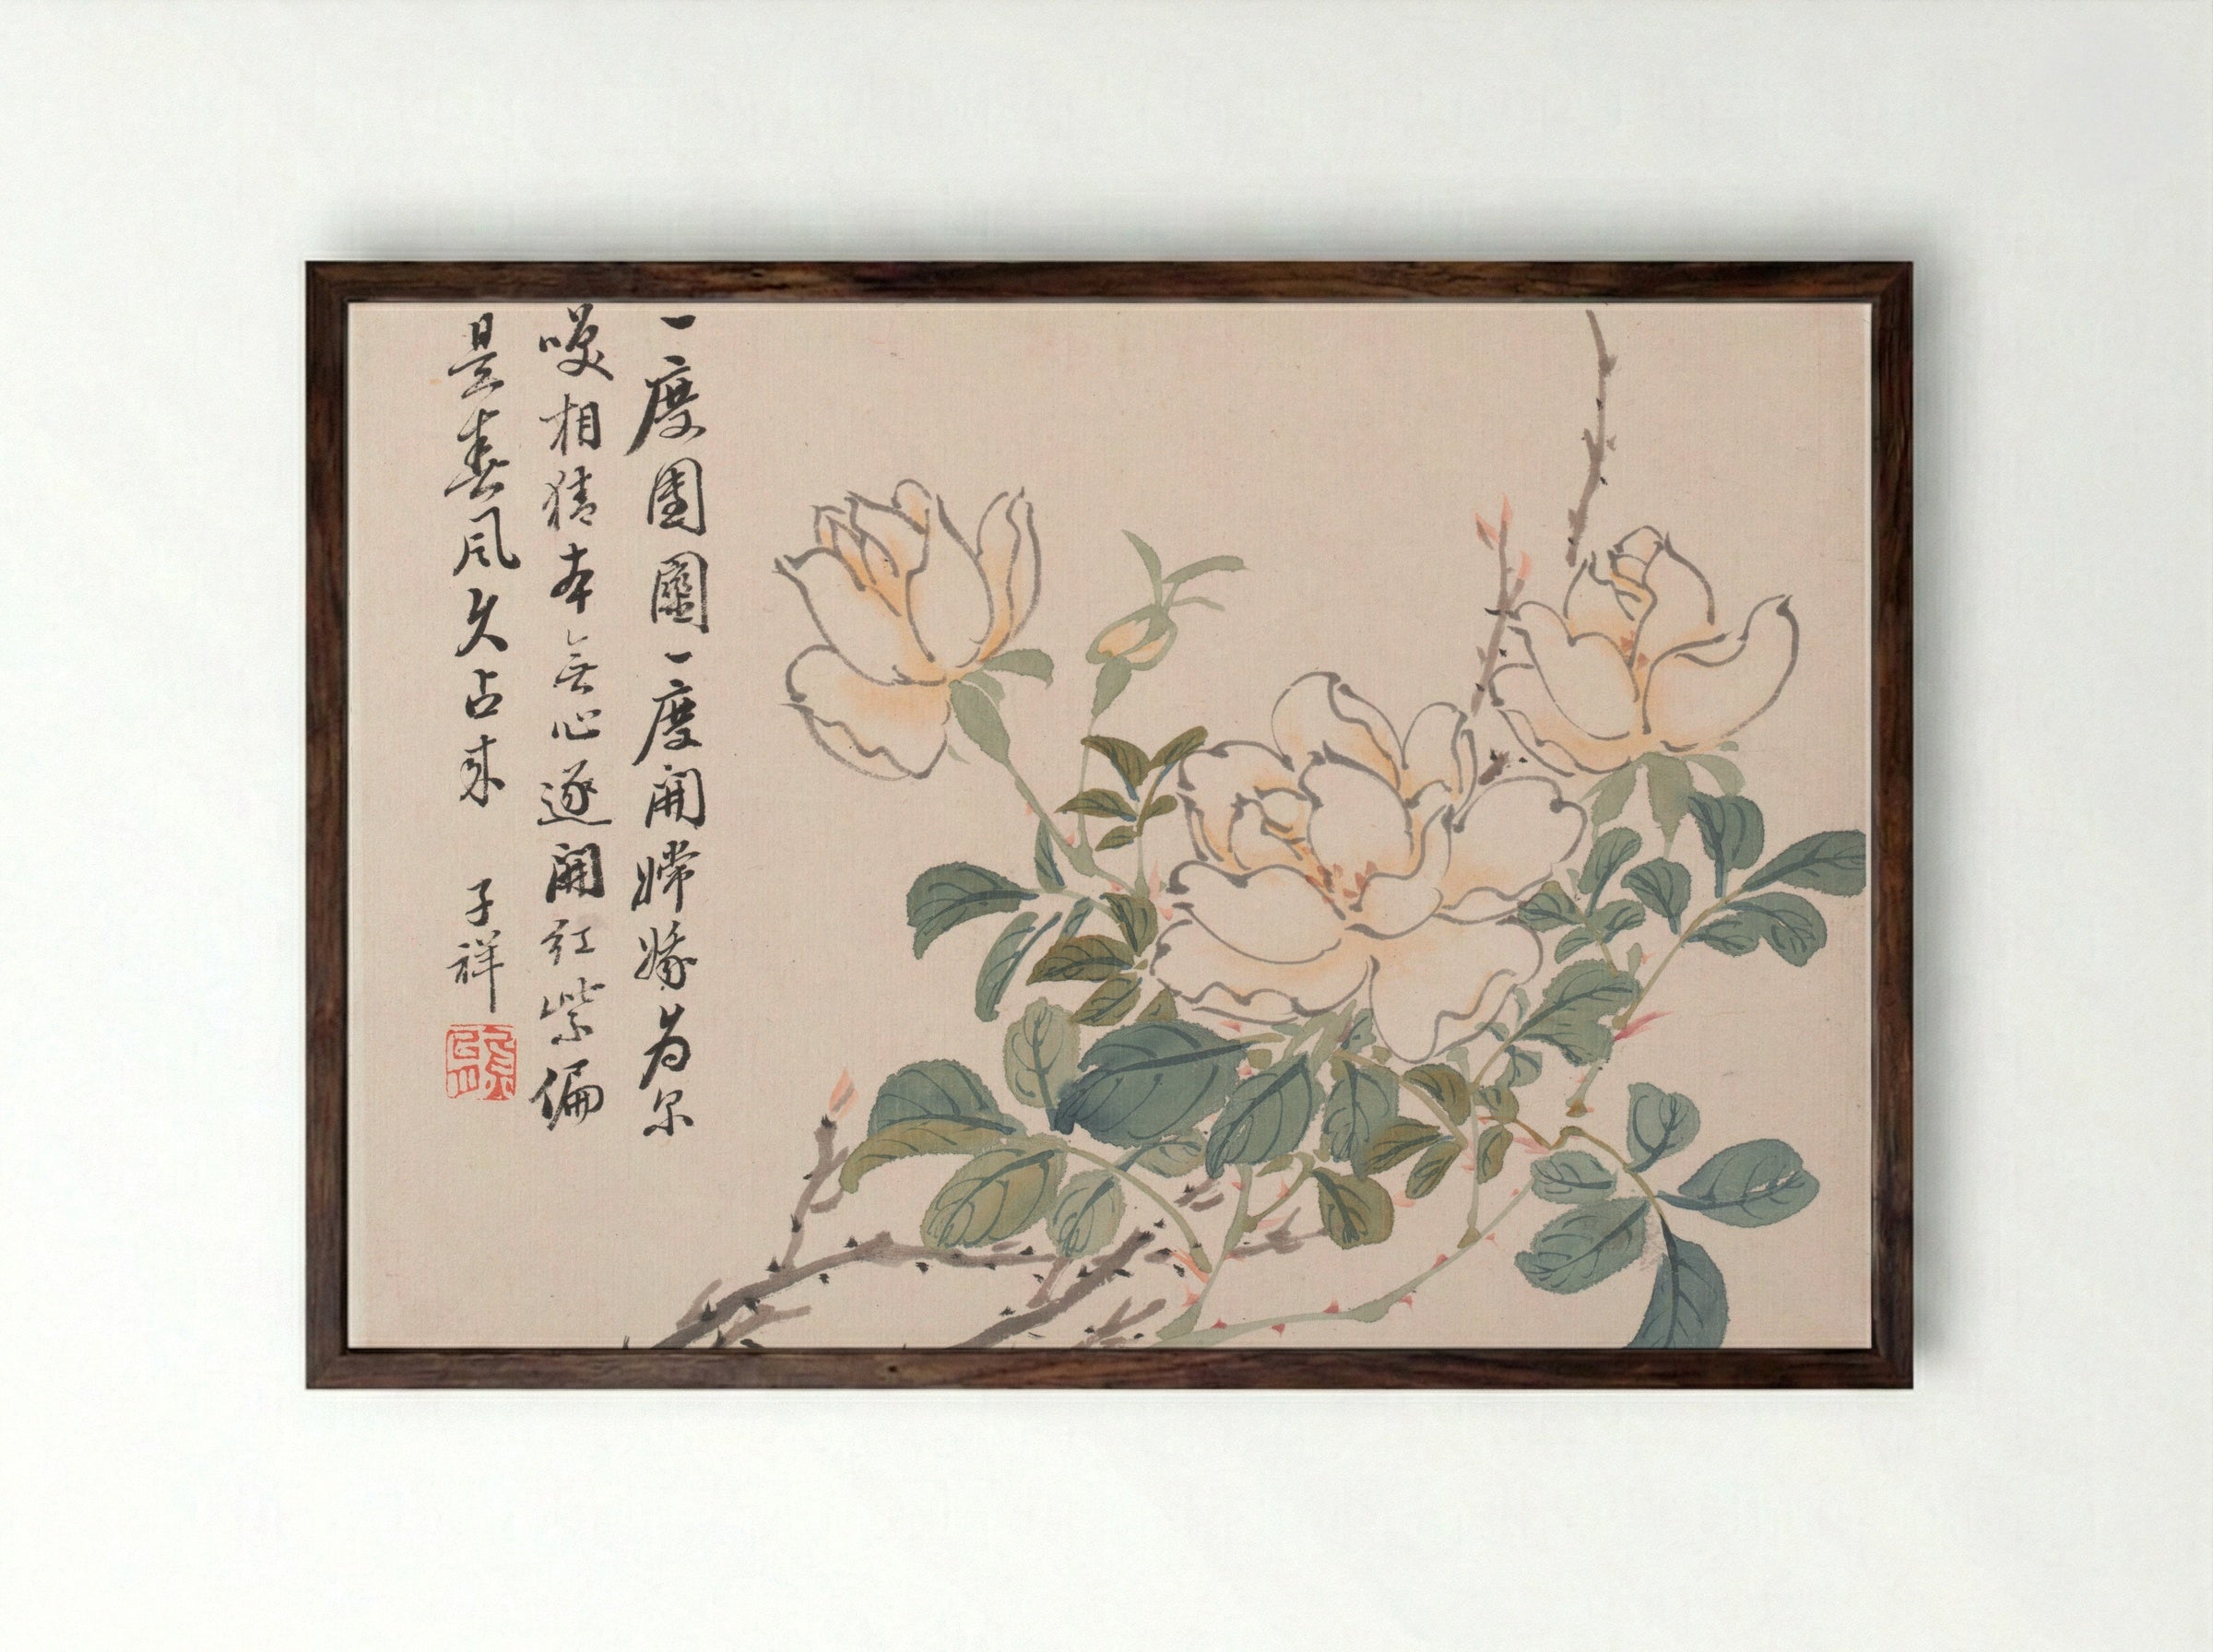 一度團圞一度開嫦娥為尔
咲相猜本無心逐閒紅紫偏
是春風久占来 子祥